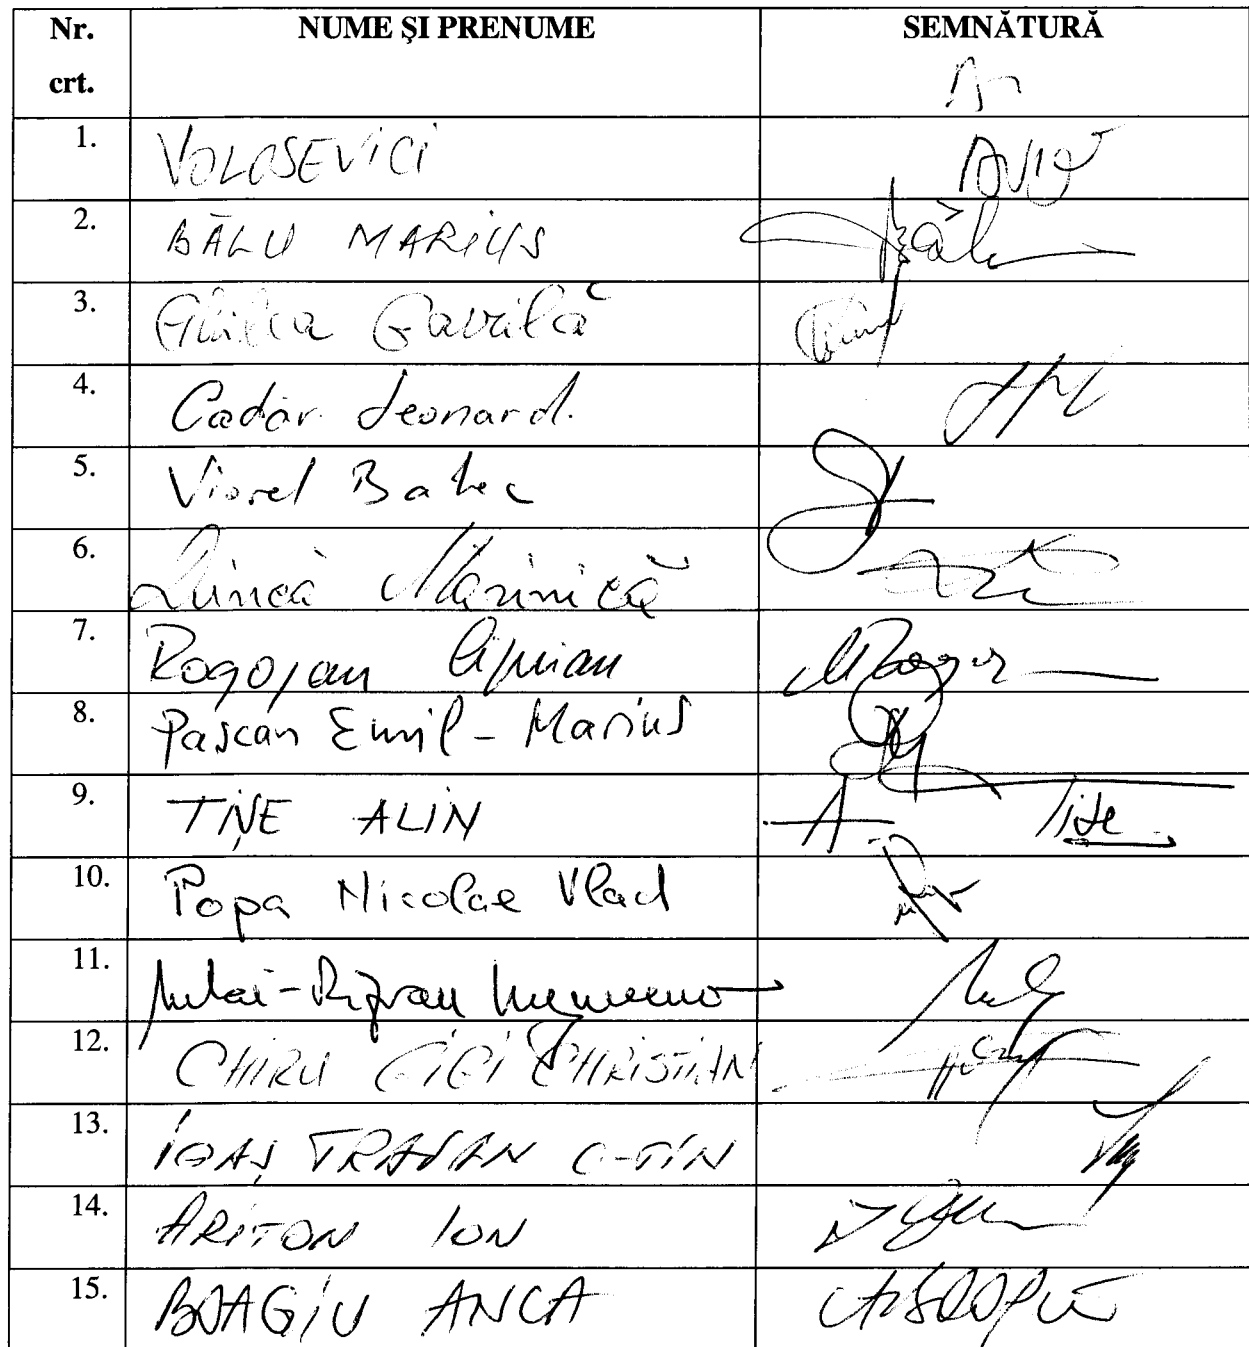 Nr. crt. NUME ŞI PRENUME SEMNĂTURĂ
1. VOLOSEVICI
2. BĂLU MARIUS
3. Ghilea Gavrilă
4. Cadar Leonard.
5. Viorel Badea
6. Dincă Mărinică
7. Rogojan Ciprian
8. Pașcan Emil - Marius
9. TIȘE ALIN
10. Popa Nicolae Vlad
11. Mihai-Răzvan Ungureanu
12. CHIRU GIGI CHRISTIAN
13. IGAȘ TRAIAN C-TIN
14. ARITON ION
15. BOAGIU ANCA